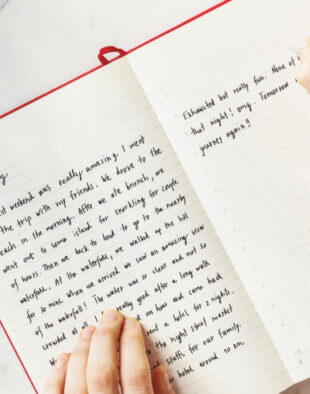 y
st weekend was really amazing I went
the trip with my friends. We drove to the
each in the morning. After we ate brunch, we
went out to some island for snorkling for couple
of hours. Then we back to land to go to the nearby
waterfall. At the waterfall, we walked up the hill
for 30 mins. when we arrived we saw an amazing view
of the waterfall! The water was so clear and not so
crowded really good after a long walk
W an hour and came back
end a hotel for 2 nights.
to the night street market
d stuffs for our family.
hotel around 10 pm.
Exhausted but really fun. None of
that night! omg. Tomorrow
journey again!!